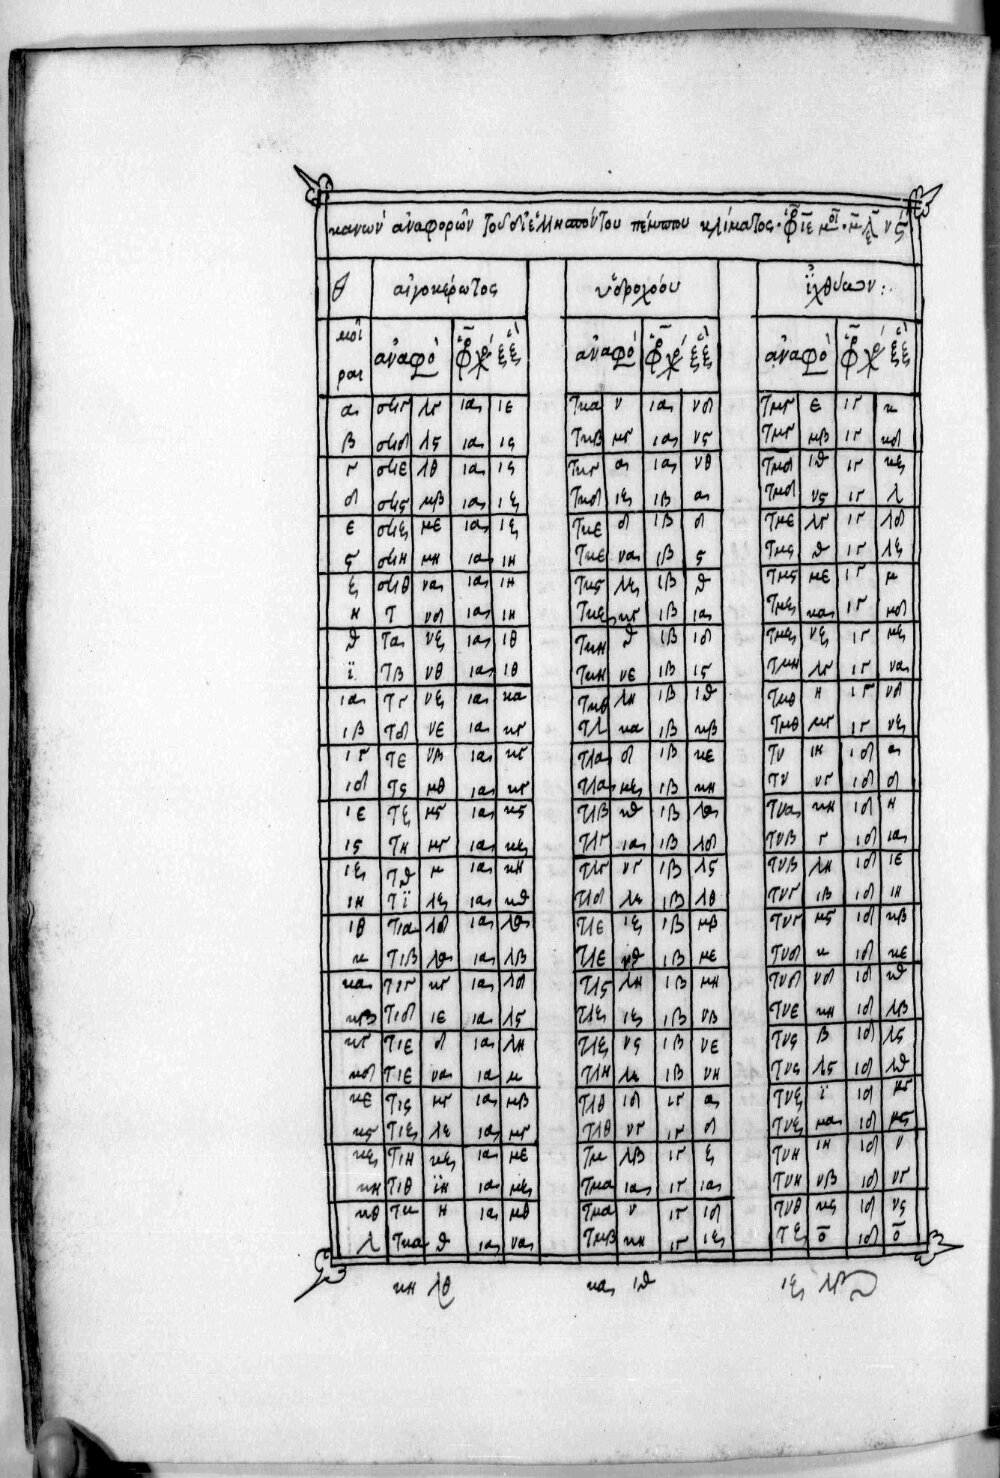 κανων ἀναφορῶν τοῦ δι' ἑλλησπόντου πέμπτου κλίματος · ὡρ ιε μοι · μ νς
θ αἰγοκέρωτος ὑδροχόου ἰχθύων :
μοῖραι ἀναφο ὡρ χρ ἑξ ἀναφο ὡρ χρ ἑξ ἀναφο ὡρ χρ ἑξ
α σϟγ λγ ια ιε τκα ν ια νδ τμγ ε ιγ κ
β σϟδ λς ια ις τκβ μγ ια νς τμγ μβ ιγ κδ
γ σϟε λθ ια ις τκγ α ια νθ τμδ ιθ ιγ κζ
δ σϟς μβ ια ιζ τκδ ιζ ιβ α τμδ νς ιγ λ
ε σϟζ με ια ιζ τκε δ ιβ δ τμε λγ ιγ λδ
ς σϟη μη ια ιη τκε να ιβ ς τμς θ ιγ λζ
ζ σϟθ να ια ιη τκς λζ ιβ θ τμς με ιγ μ
η τ νδ ια ιη τκζ κγ ιβ ια τμζ κα ιγ μδ
θ τα νζ ια ιθ τκη θ ιβ ιδ τμζ νζ ιγ μζ
ϊ τβ νθ ια ιθ τκη νε ιβ ις τμη λγ ιγ να
ια τγ νζ ια κα τκθ λη ιβ ιθ τμθ η ιγ νδ
ιβ τδ νε ια κγ τλ κα ιβ κβ τμθ μγ ιγ νζ
ιγ τε νβ ια κγ τλα δ ιβ κε τν ιη ιδ α
ιδ τς μθ ια κγ τλα μζ ιβ κη τν νγ ιδ δ
ιε τζ μς ια κς τλβ κθ ιβ λθ τνα κη ιδ η
ις τη μγ ια κζ τλγ ια ιβ λδ τνβ γ ιδ ια
ιζ τθ μ ια κη τλγ νγ ιβ λς τνβ λη ιδ ιε
ιη τϊ λζ ια κθ τλδ λε ιβ λθ τνγ ιβ ιδ ιη
ιθ τια λδ ια λθ τλε ιζ ιβ μβ τνγ μς ιδ κβ
κ τιβ λθ ια λβ τλε νθ ιβ με τνδ κ ιδ κε
κα τιγ κγ ια λδ τλς λη ιβ μη τνδ νδ ιδ κθ
κβ τιδ ιε ια λς τλζ ιζ ιβ νβ τνε κη ιδ λβ
κγ τιε δ ια λη τλζ νς ιβ νε τνς β ιδ λς
κδ τιε να ια μ τλη λε ιβ νη τνς λς ιδ λθ
κε τις μγ ια μβ τλθ ιδ ιγ α τνζ ϊ ιδ μγ
κς τιζ λε ια μγ τλθ νγ ιγ δ τνζ μα ιδ μς
κζ τιη κζ ια με τμ λβ ιγ ζ τνη ιη ιδ ν
κη τιθ ϊη ια μζ τμα ια ιγ ια τνη νβ ιδ νγ
κθ τκ η ια μθ τμα ν ιγ ιδ τνθ κς ιδ νς
λ τκα θ ια να τμβ κη ιγ ιζ τξ ο ιδ ο
κη λθ κα ιθ ιζ λβ